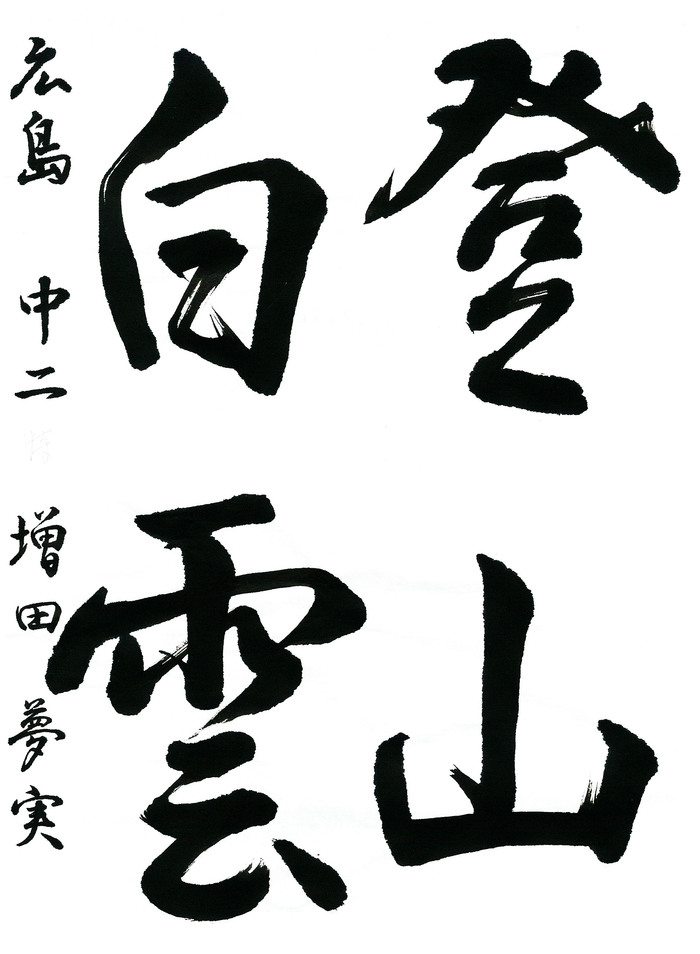 登山
白雲
広島 中二 増田夢実